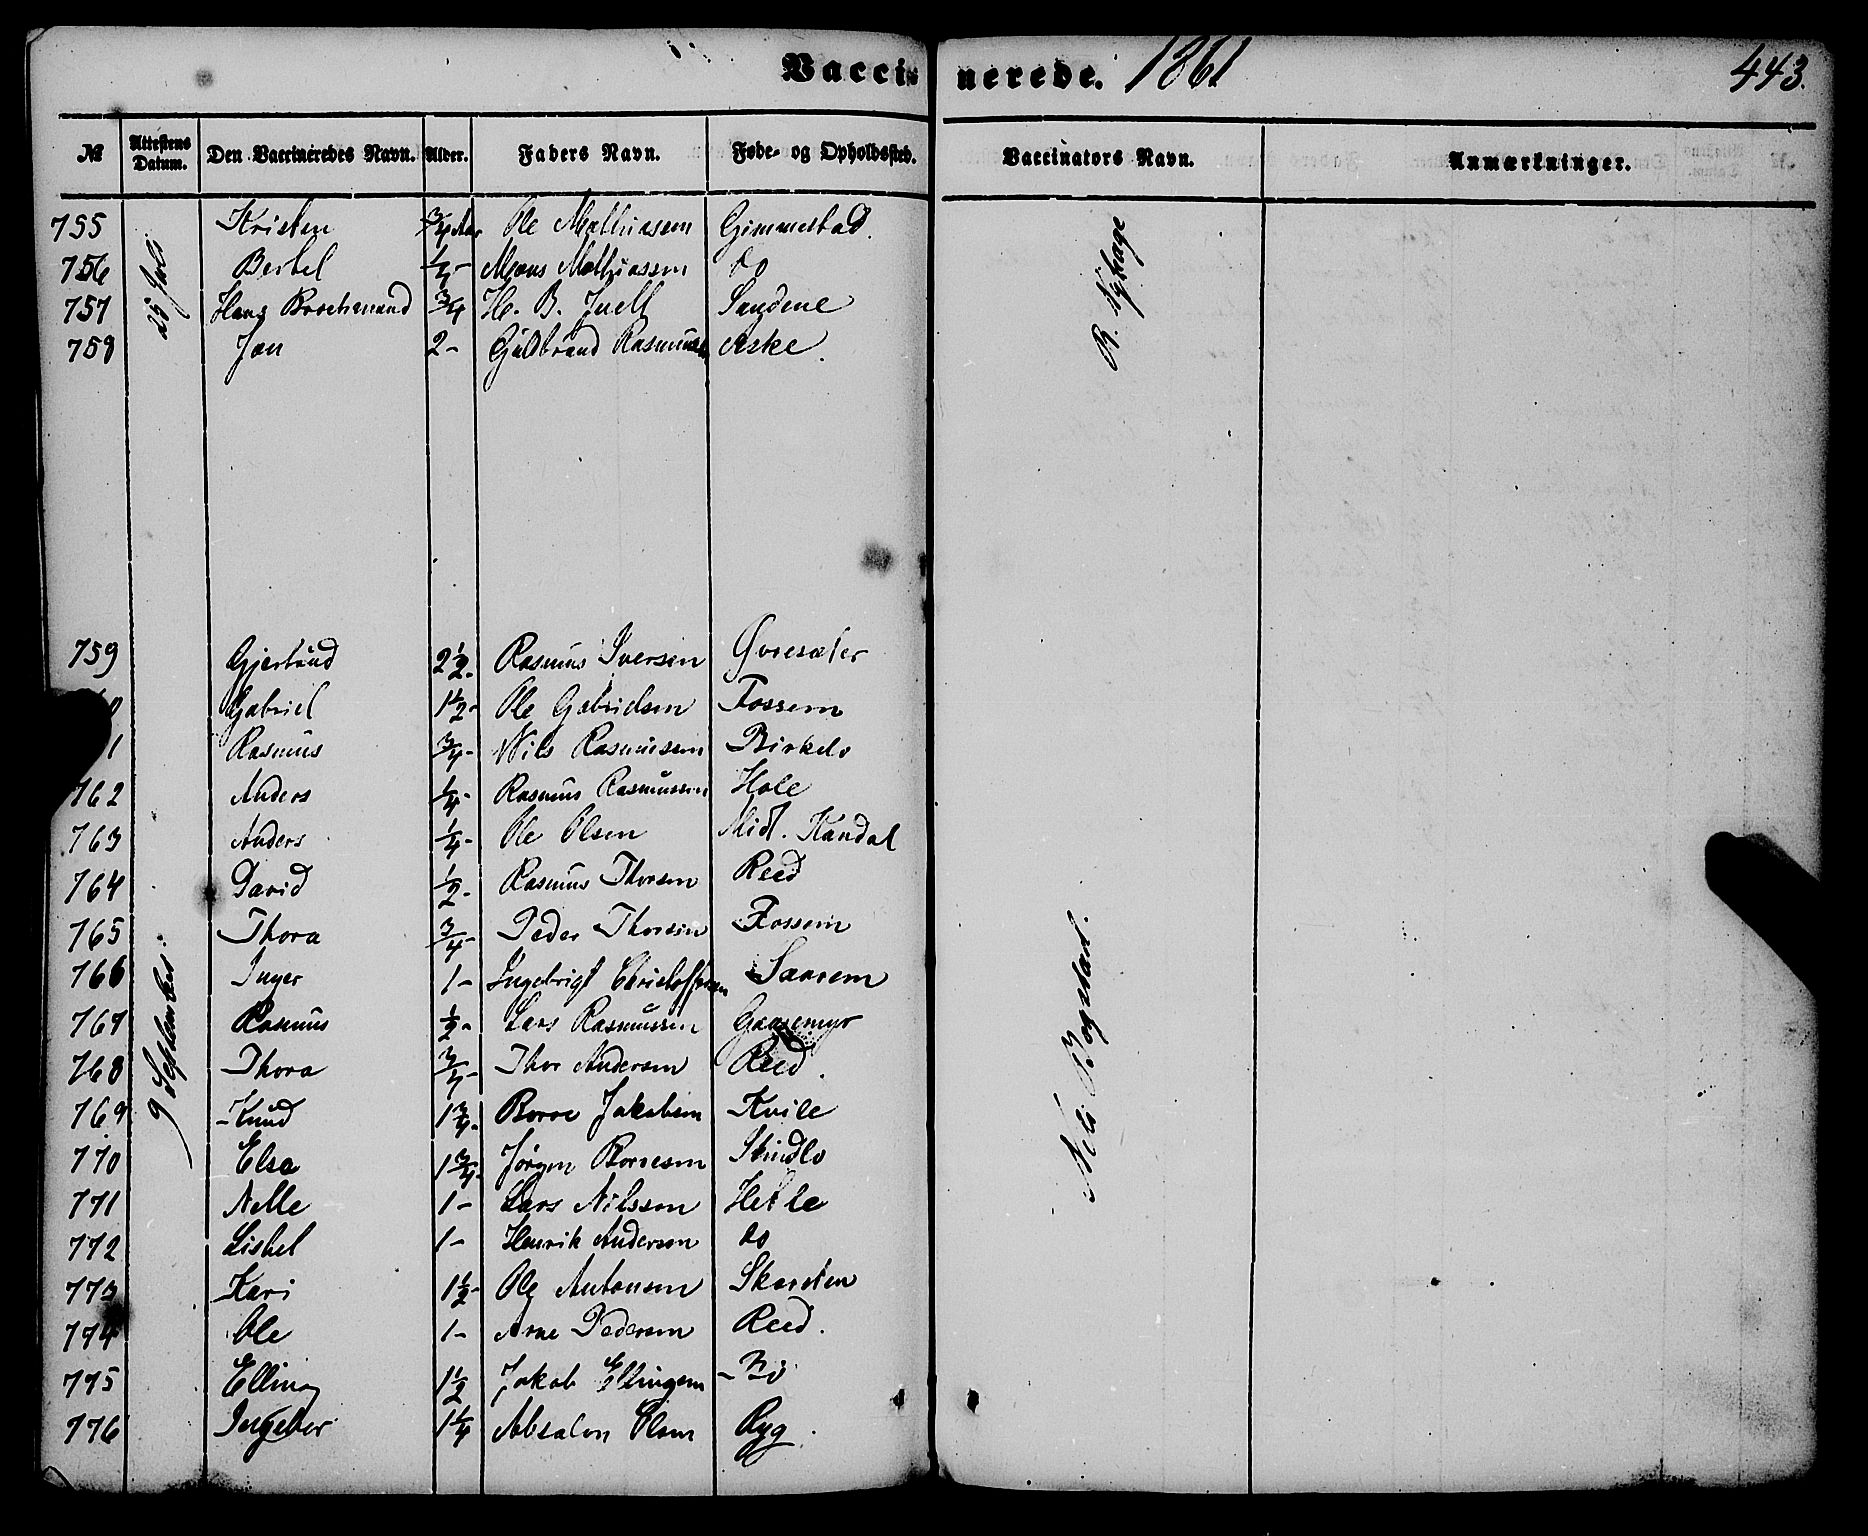 Vaccinerede. 1861
443.
№ Attestens Datum. Den Vaccineredes Navn. Alder. Faders Navn. Føde- og Opholdssted. Vaccinators Navn. Anmærkninger.
25 Juli
755 Kristen 3/4 Aar Ole Mathiassen Gimmestad.
756 Bertel 1/4 - Mons Mathiassen do
757 Hans Brochmand 3/4 H. B. Juell Sandene
758 Jon 2 - Guldbrand Rasmussen Aske.
9 September
759 Gjertrud 2 1/2 - Rasmus Iversen Øvresæter
Gabriel 1 1/2 - Ole Gabrielsen Fossem
1 Rasmus 3/4 - Nils Rasmussen Birkelo
762 Anders 1/4 - Rasmus Rasmussen Hole
763 Anders 1/4 - Ole Olsen Midt. Kandal
764 David 1/2 - Rasmus Thorsen Reed
765 Thora 3/4 - Peder Thorsen Fossem
766 Inger 1 - Ingebrigt Christoffersen Sanrem
767 Rasmus 1/2 - Lars Rasmussen Gaasemyr
768 Thora 3/4 - Thor Andersen Reed.
769 Knud 1 3/4 - Borre Jakobsen Kvile
770 Elsa 1 3/4 - Jørgen Borresen Skindlo
771 Nelle 1 - Lars Nilsson Hetle
772 Lisbet 1 - Henrik Andersen do
773 Kari 1 1/2 - Ole Antonsen Skarsten
774 Ole 1 - Arne Pedersen Reed.
775 Elling 1 1/2 Jakob Ellingsen Bø
776 Ingebor 1 1/4 Absalon Olsen Ryg.
R. Nykage
Nils Fogstad.